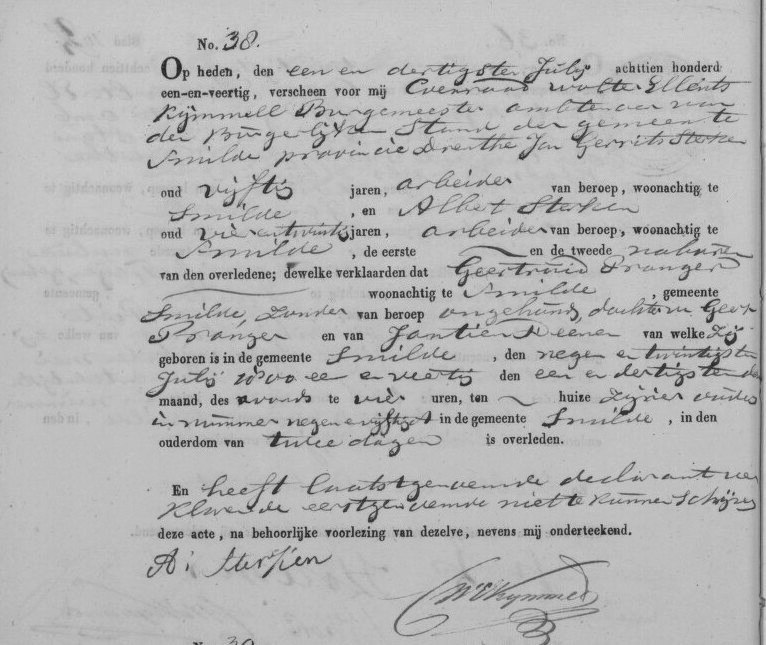 No. 38.
Op heden, den een en dertigsten Julij achttien honderd
een-en-veertig, verscheen voor mij Coenraad Wolter Ellents
Kymmell Burgemeester ambtenaar van
den Burgerlijken Stand der gemeente
Smilde provincie Drenthe Jan Gerrits Sterken
oud vijftig jaren, arbeider van beroep, woonachtig te
Smilde, en Albert Sterken
oud vier en twintig jaren, arbeider van beroep, woonachtig te
Smilde, de eerste en de tweede naburen
van den overledene; dewelke verklaarden dat Geertruid Pranger
woonachtig te Smilde, gemeente
Smilde, zonder van beroep ongehuwd, dochter van Geert
Pranger en van Jantien Deenen van welke zij
geboren is in de gemeente Smilde, den negen en twintigsten
Julij 1800 een en veertig den een en dertigsten der
maand, des avonds te vier uren, ten huize zijner ouders
in nummer negen en vijftig in de gemeente Smilde, in den
ouderdom van twee dagen is overleden.
En heeft laatstgenoemde declarant ver
klarende eerstgenoemde niet te kunnen schrijven
deze acte, na behoorlijke voorlezing van dezelve, nevens mij onderteekend.
A: Sterken
CWEKymmell